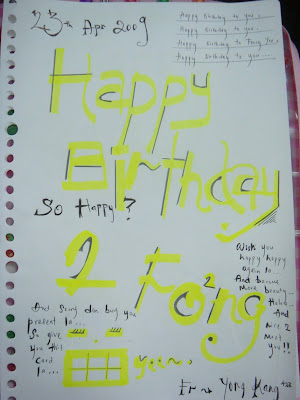 23th Apr 2009
Happy Birthday to you...
Happy Birthday to you...
Happy Birthday to Fong Yee..
Happy Birthday to you...
Happy
Birthday
So Happy?
2 Fong
Wish you
happy happy
again lo..
And become
more beauty...
Haha...
And
nice 2
meet
you!!
And Song don buy you
present lo...
So give
you this
card
lo...
Fr ~ Yong Kang